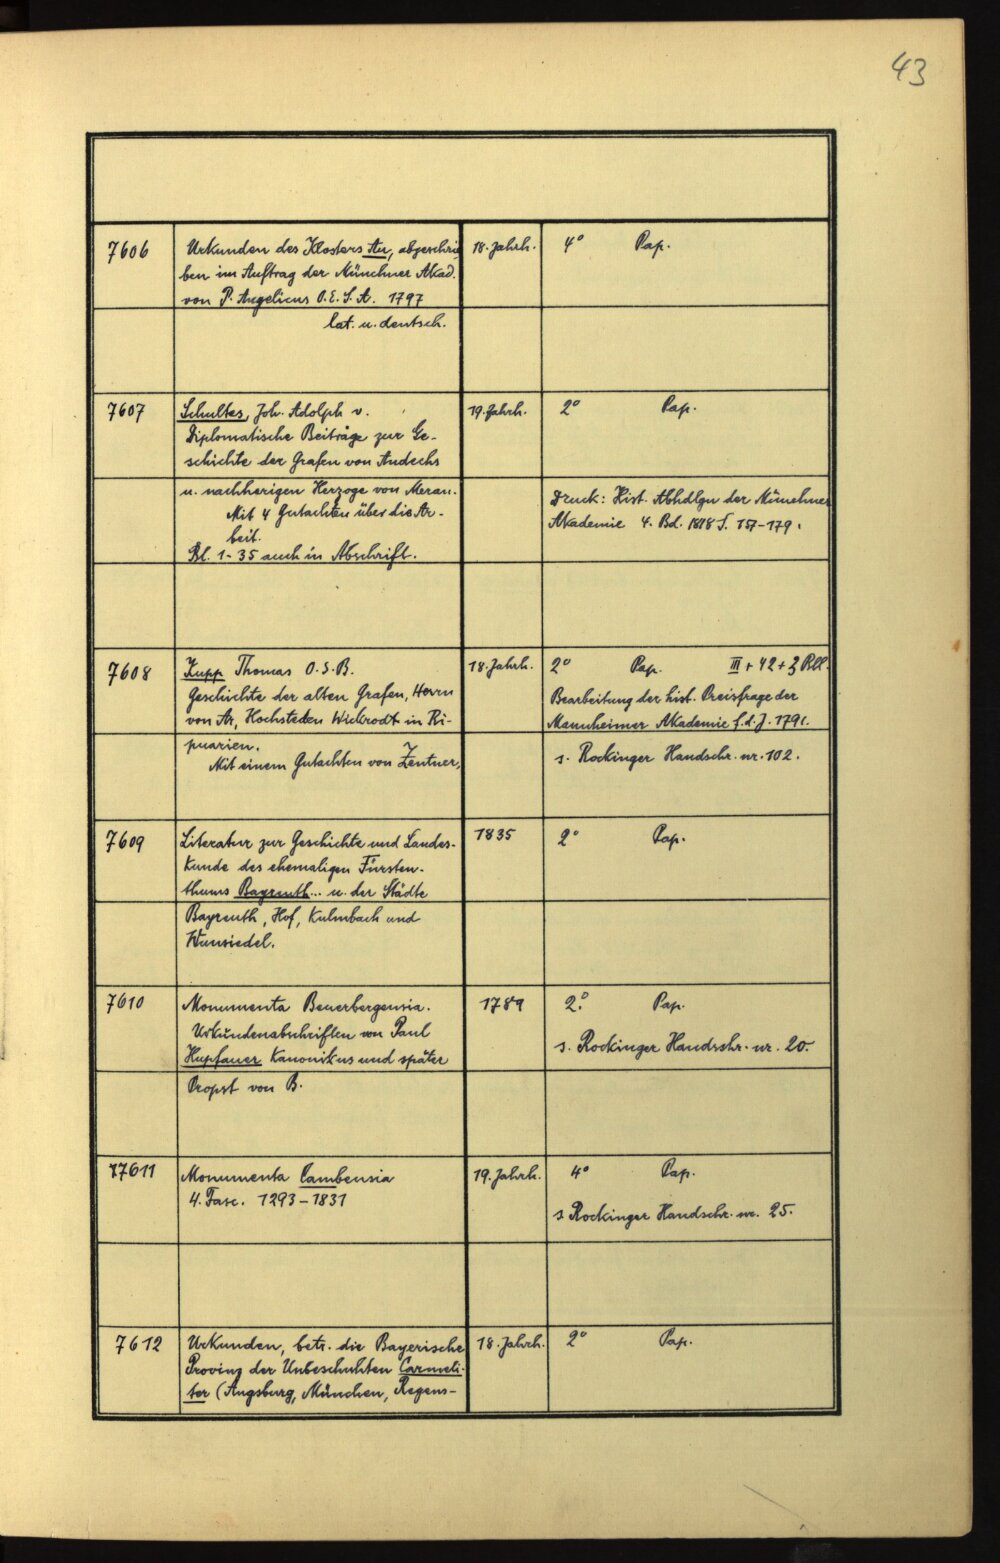 43
7606 Urkunden des Klosters Au, abgeschrie 18. Jahrh. 4° Pap.
ben im Auftrag der Münchner Akad.
von P. Angelicus O.E.S.A. 1797
lat. u. deutsch.
7607 Schultes, Joh. Adolph v. 19. Jahrh. 2° Pap.
Diplomatische Beiträge zur Ge-
schichte der Grafen von Andechs
u. nachherigen Herzoge von Meran.
Mit 4 Gutachten über die Ar-
beit.
Bl. 1-35 auch in Abschrift.
Druck: Hist. Abhdlgn der Münchner
Akademie 4. Bd. 1818 S. 151-179.
7608 Kupp Thomas O.S.B. 18. Jahrh. 2° Pap. III + 42 + 3 Bll.
Geschichte der alten Grafen, Herrn
von Ar, Hochsteden Wickrodt in Ri-
puarien.
Mit einem Gutachten von Zentner,
Bearbeitung der hist. Preisfrage der
Mannheimer Akademie f. d. J. 1791.
s. Rockinger Handschr. nr. 102.
7609 Literatur zur Geschichte und Landes- 1835 2° Pap.
kunde des ehemaligen Fürsten-
thums Bayreuth... u. der Städte
Bayreuth, Hof, Kulmbach und
Wunsiedel.
7610 Monumenta Beuerbergensia. 1789 2° Pap.
Urkundenabschriften von Paul
Hupfauer Kanonikus und später
Propst von B.
s. Rockinger Handsshr. nr. 20.
77611 Monumenta Cambensia 19. Jahrh. 4° Pap.
4. Fasc. 1293-1831
s Rockinger Handschr. nr. 25.
7612 Urkunden, betr. die Bayerische 18. Jahrh. 2° Pap.
Provinz der Unbeschuhten Carmeli-
ter (Augsburg, München, Regens-